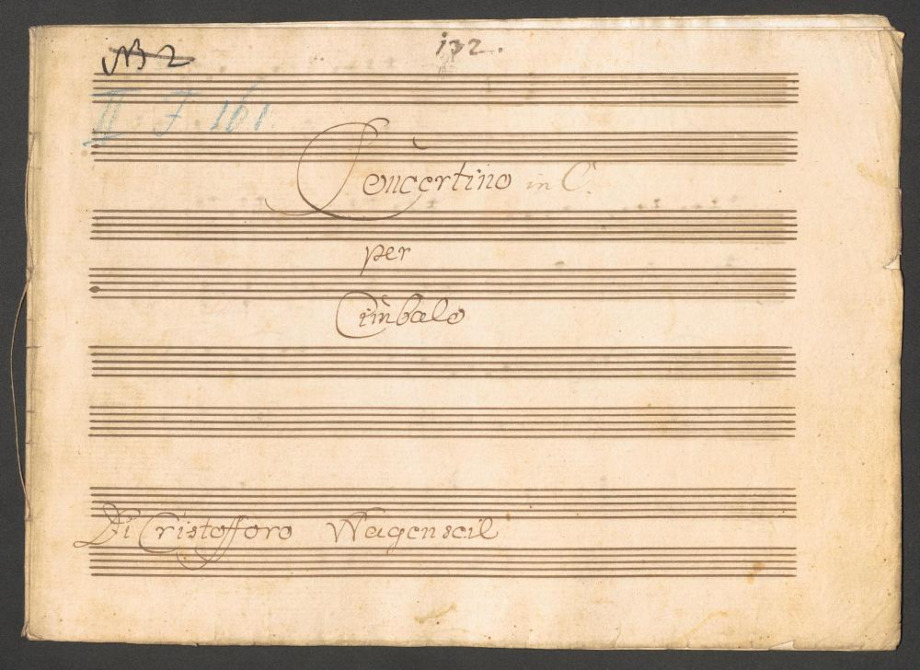 N 2
132.
II F. 161
Concertino in C.
per
Cimbalo
Di Cristofforo Wagenseil